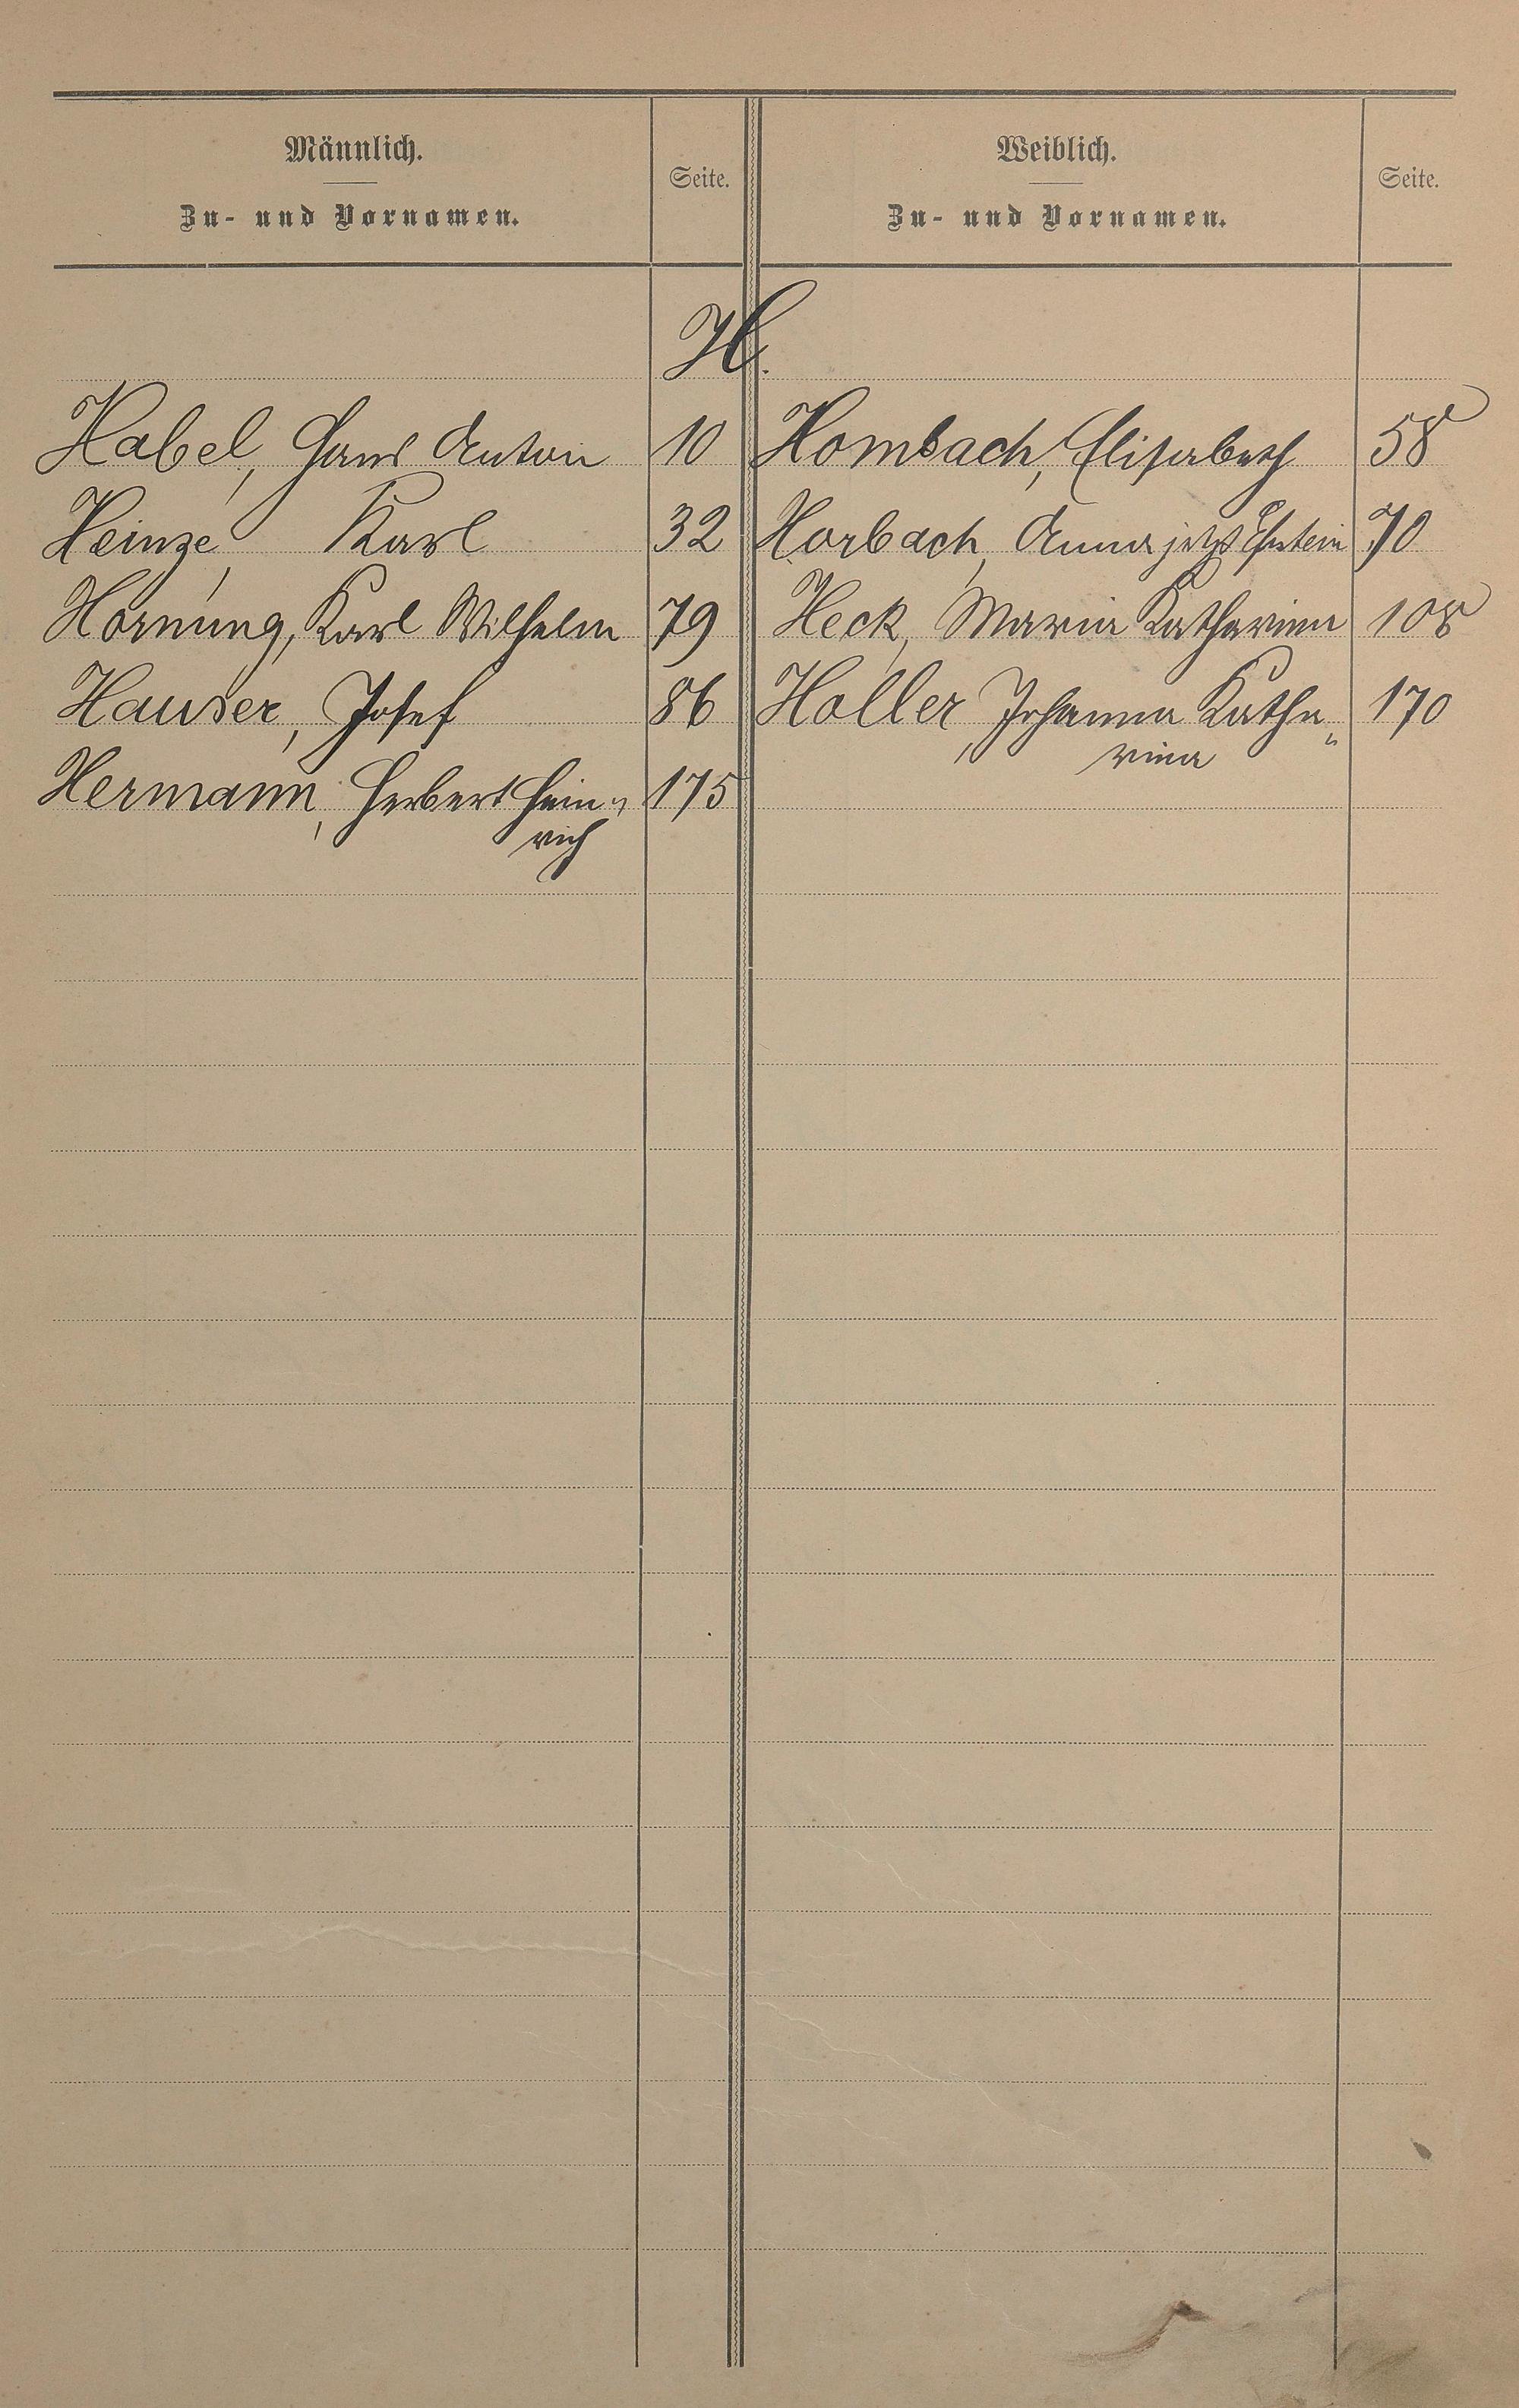 Männlich.
Zu- und Vornamen.
Seite.
Weiblich.
Zu- und Vornamen.
Seite.
H.
Habel, Hans Anton 10
Hombach, Elisabeth 58
Heinze, Karl 32
Horbach, Anna jetzt 70
Hornung, Karl Wilhelm 79
Heck, Maria Katharina 108
Hauser, Josef 86
Holler, Johanna Katha„ 170
rina
Hermann, Herbert Hein„ 175
rich